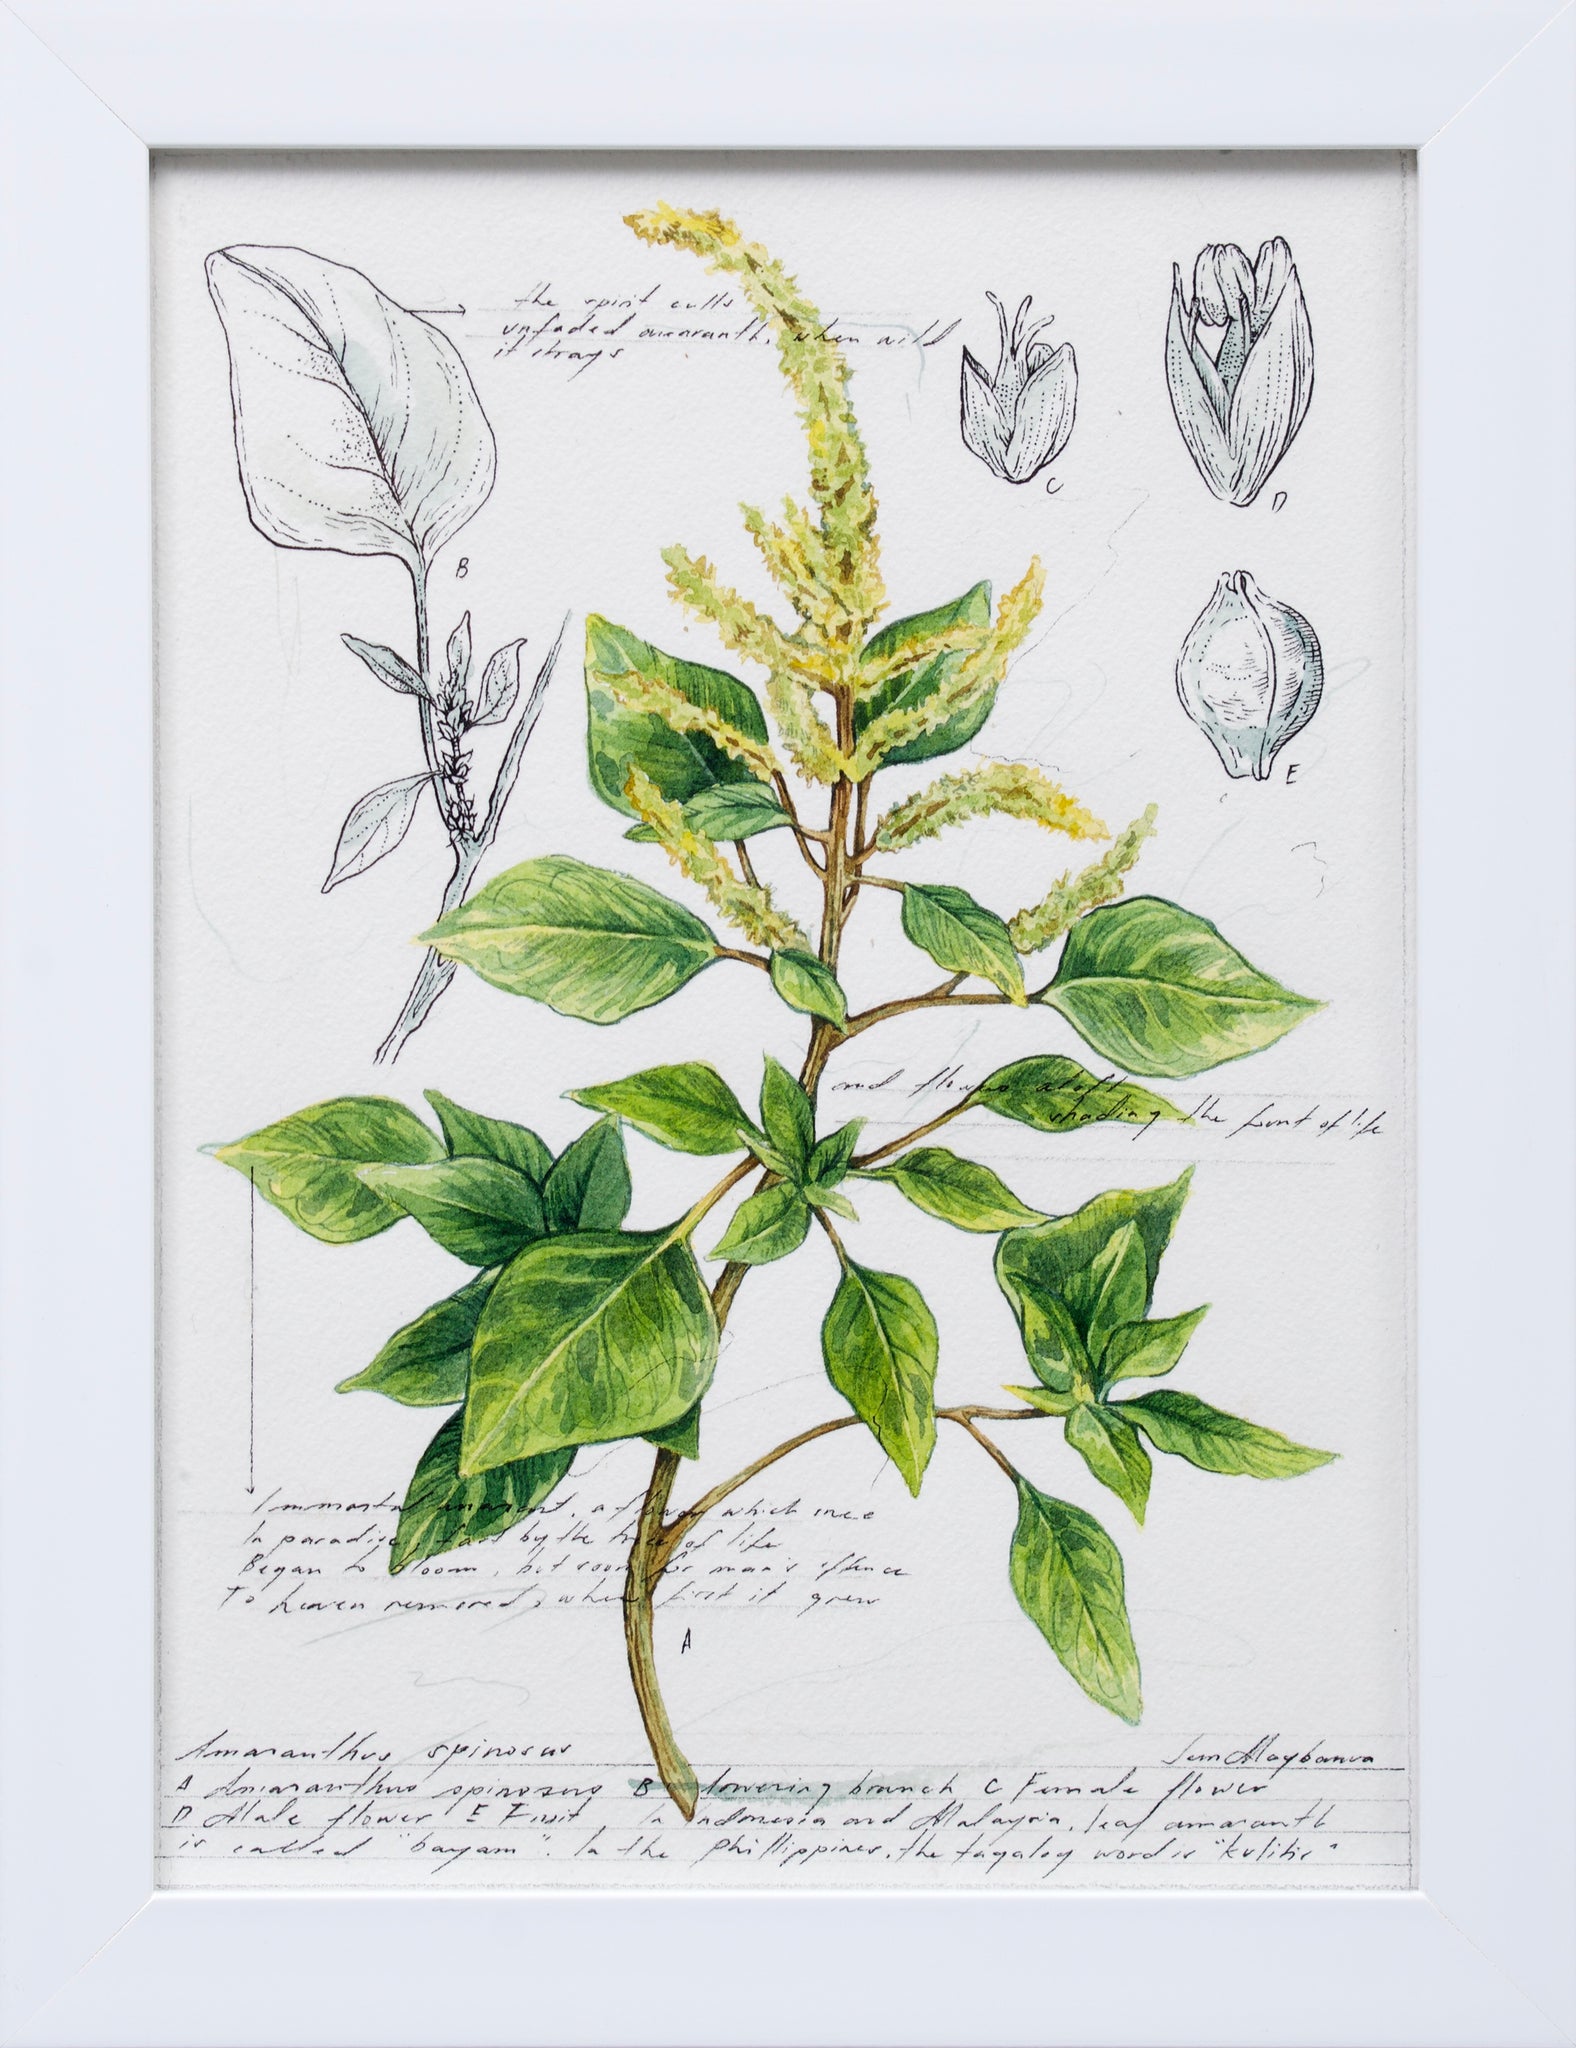 the spirit culls
unfaded amaranth, when wild
it strays
C
D
B
E
and flowers aloft
shading the fount of life
Immortal amarant, a flower which once
In paradise, fast by the tree of life
Began to bloom, but soon for man's offence
To heaven removed, where first it grew
A
Amaranthus spinosus
Jem Magbanua
A Amaranthus spinosus B Flowering branch C Female flower
D Male flower E Fruit. In Indonesia and Malaysia, leaf amaranth
is called "bayam". In the Phillippines, the tagalog word is "kulitis"